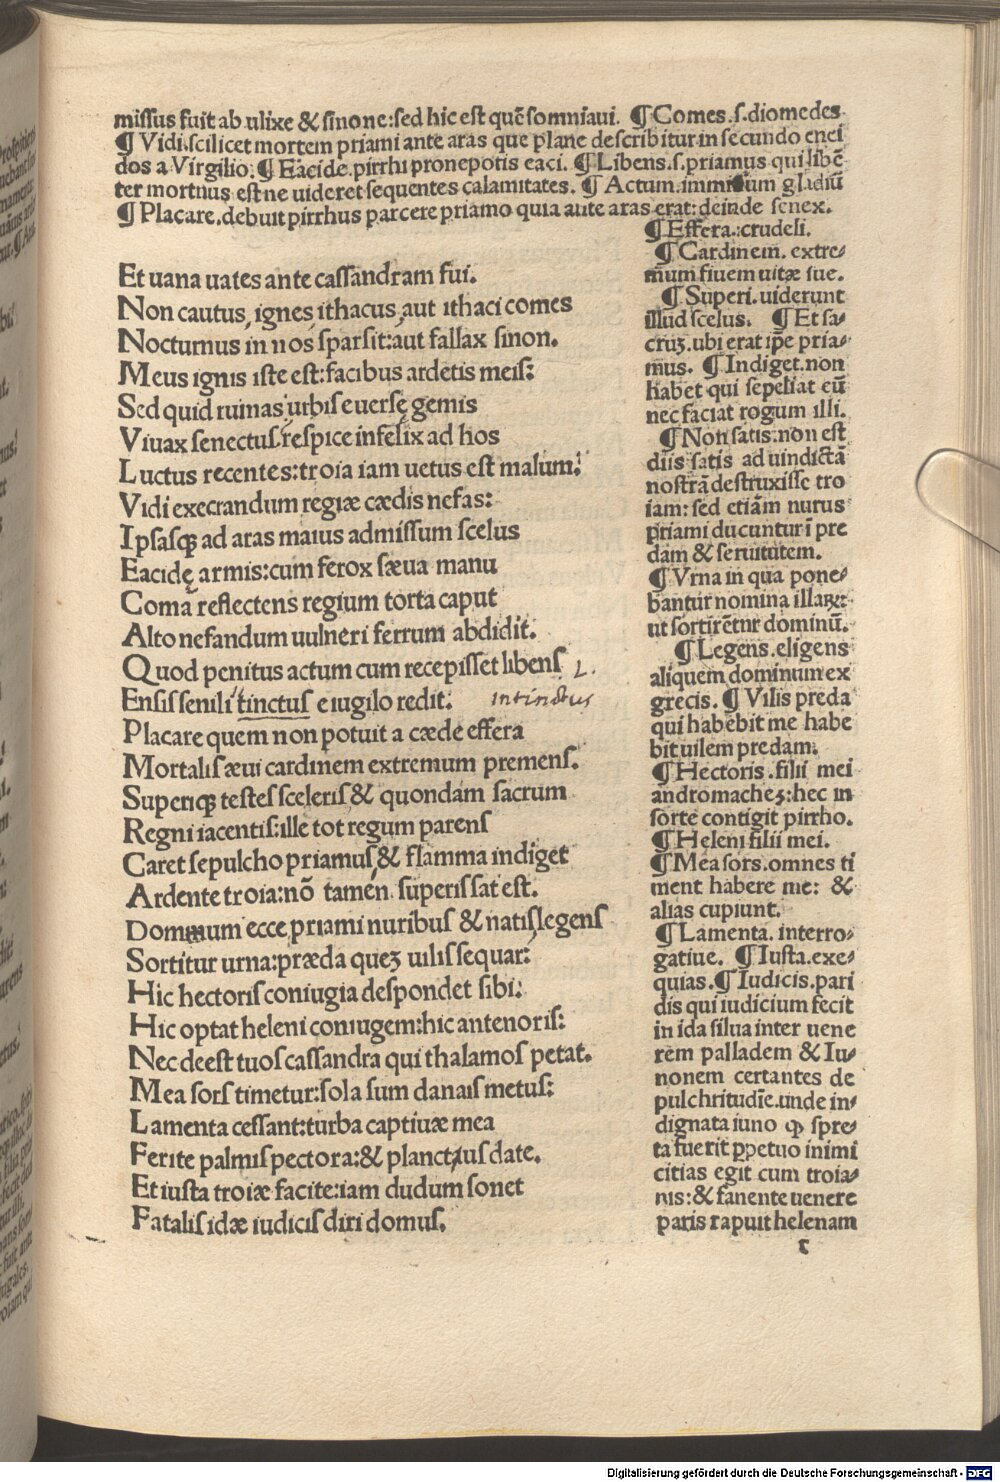 missus fuit ab ulixe & sinone:sed hic est quē somniaui. ¶ Comes.s.diomedes
¶ Vidi.scilicet mortem priami ante aras que plane describitur in secundo enei
dos a Virgilio. ¶ Eacide.pirrhi pronepotis eaci. ¶ Libens.s.priamus qui libē
ter mortuus est ne uideret sequentes calamitates. ¶ Actum.immissum gladiū
¶ Placare.debuit pirrhus parcere priamo quia ante aras erat:deinde senex.
Et uana uates ante cassandram fui.
Non cautus, ignes ithacus, aut ithaci comes
Nocturnus in nos sparsit:aut fallax sinon.
Meus ignis iste est:facibus ardetis meis:
Sed quid ruinas urbis euersę gemis
Viuax senectus?respice infelix ad hos
Luctus recentes:troia iam uetus est malum:
Vidi execrandum regiæ cædis nefas:
Ipsasqꝫ ad aras maius admissum scelus
Eacidę armis:cum ferox sæua manu
Coma reflectens regium torta caput
Alto nefandum uulneri ferrum abdidit.
Quod penitus actum cum recepisset libens
Ensis senili tinctus e iugilo redit:
Placare quem non potuit a cæde effera
Mortalis æui cardinem extremum premens.
Superiqꝫ testes sceleris & quondam sacrum
Regni iacentis:ille tot regum parens
Caret sepulcho priamus, & flamma indiget
Ardente troia:nō tamen superis sat est.
Dominum ecce priami nuribus & natis, legens
Sortitur urna:præda queꝫ uilis sequar:
Hic hectoris coniugia despondet sibi:
Hic optat heleni coniugem:hic antenoris:
Nec deest tuos cassandra qui thalamos petat.
Mea sors timetur:sola sum danais metus:
Lamenta cessant:turba captiuæ mea
Ferite palmis pectora:& planctus date.
Et iusta troiæ facite:iam dudum sonet
Fatalis idæ iudicis diri domus.
l. intinctus
¶ Effera.:crudeli.
¶ Cardinem. extre-
mum finem uitæ sue.
¶ Superi.uiderunt
illud scelus. ¶ Et sa-
cruꝫ.ubi erat ip̄e pria-
mus. ¶ Indiget.non
habet qui sepeliat eū
nec faciat rogum illi.
¶ Non satis:non est
diis satis ad uindictā
nostrā destruxisse tro
iam: sed etiam nurus
priami ducuntur ī pre
dam & seruitutem.
¶ Vrna in qua pone-
bantur nomina illaꝝ:
ut sortirētur dominū.
¶ Legens.eligens
aliquem dominum ex
grecis. ¶ Vilis preda
qui habebit me habe
bit uilem predam.
¶ Hectoris.filii mei
andromacheꝫ:hec in
sorte contigit pirrho.
¶ Heleni filii mei.
¶ Mea sors.omnes ti
ment habere me: &
alias cupiunt.
¶ Lamenta. interro-
gatiue. ¶ Iusta.exe-
quias. ¶ Iudicis.pari
dis qui iudicium fecit
in ida silua inter uene
rem palladem & Iu-
nonem certantes de
pulchritudīe.unde in-
dignata iuno qꝫ spre-
ta fuerit ꝑpetuo inimi
citias egit cum troia-
nis:& fanente uenere
paris rapuit helenam
r
Digitalisierung gefördert durch die Deutsche Forschungsgemeinschaft - DFG